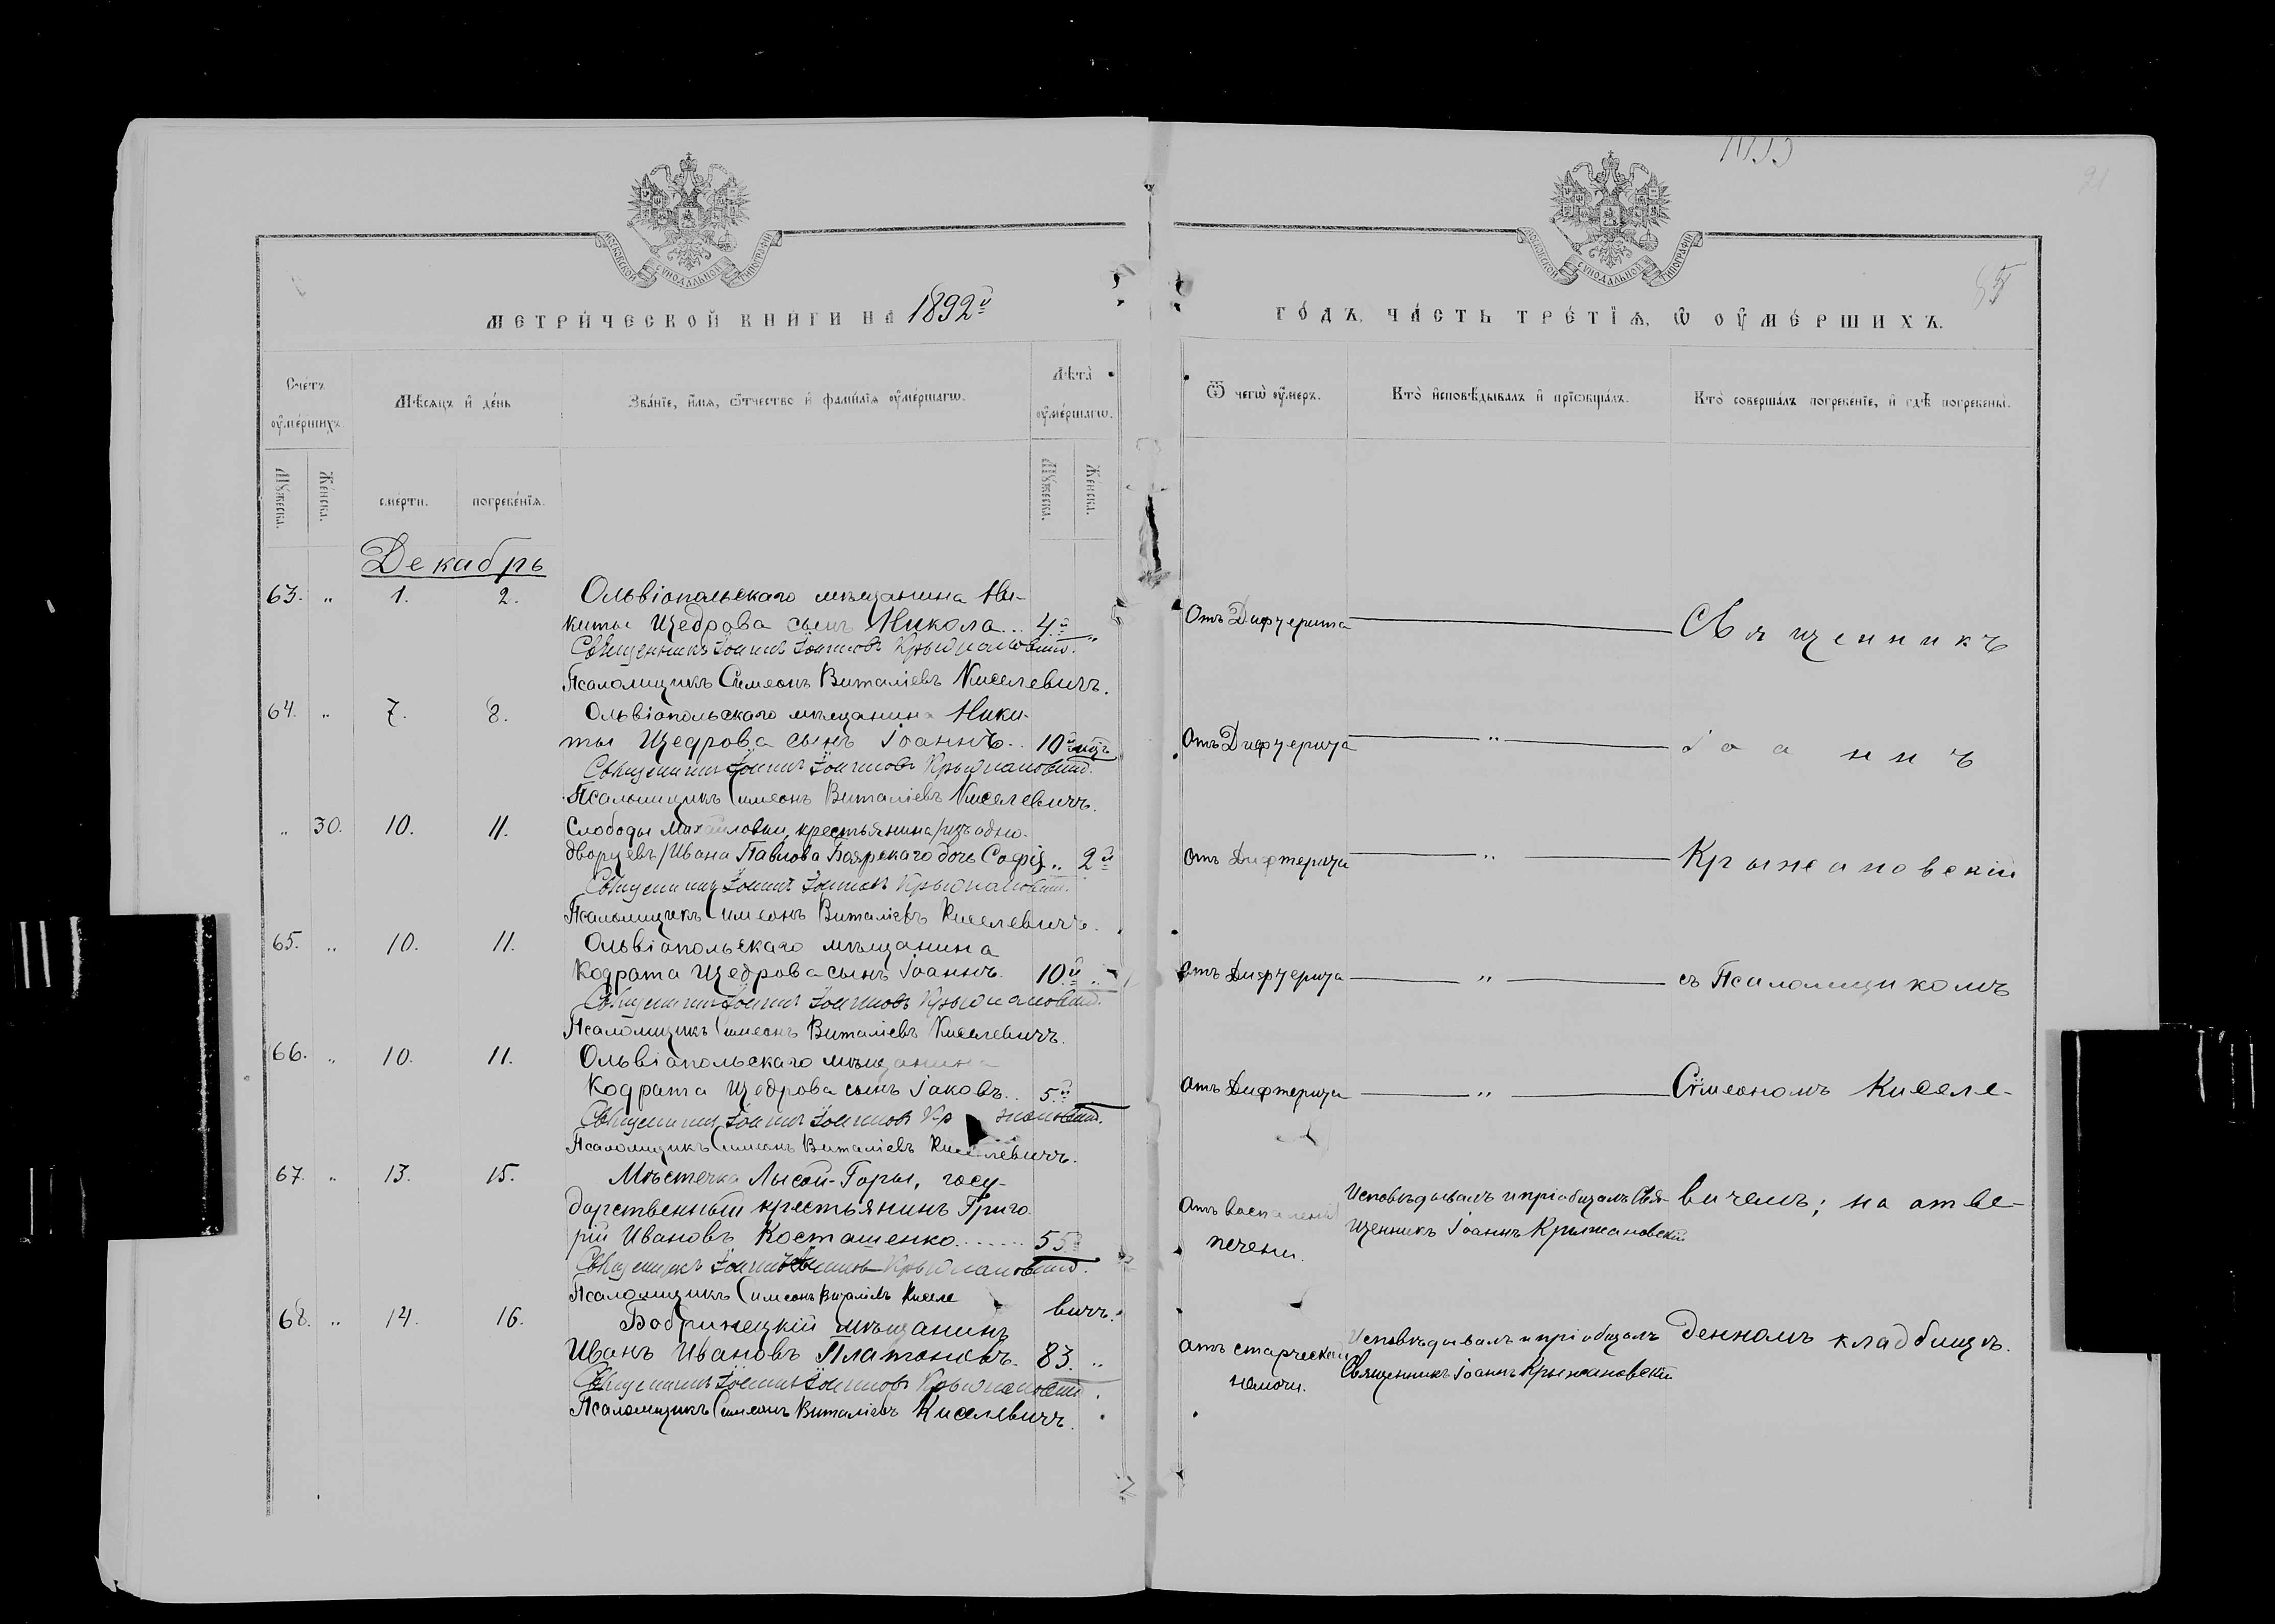 1892й
МЕТРИЧЕСКОЙ КНИГИ НА
Счетъ оумершихъ.
Мѣсяцъ и день
Званіе, имя, отчество и фамилія оумершаго.
Лѣта оумершаго.
Мужеска.
Женска.
смерти.
погребенія.
Мужеска.
Женска.
Декабрь
63. „ 1. 2. Ольвіопольскаго мѣщанина Ни-
киты Щедрова сынъ Никола... 4й „
Священникъ Іоаннъ Іоанновъ Крыжановскій.
Псаломщикъ Симеонъ Виталіевъ Киселевичъ.
64. „ 7. 8. Ольвіопольскаго мѣщанина Ники-
ты Щедрова сынъ Іоаннъ.. 10
Священникъ Іоаннъ Іоанновъ Крыжановскій.
Псаломщикъ Симеонъ Виталіевъ Киселевичъ.
„ 30. 10. 11. Слободы Михайловки, крестьянина /изъ одно-
дворцевъ/ Ивана Павлова Боярскаго дочь Софія „ 2й
Священникъ Іоаннъ Іоанновъ Крыжановскій.
Псаломщикъ Симеонъ Виталіевъ Киселевичъ.
65. „ 10. 11. Ольвіопольскаго мѣщанина
Кодрата Щедрова сынъ Іоаннъ. 10й „
Священникъ Іоаннъ Іоанновъ Крыжановскій.
Псаломщикъ Симеонъ Виталіевъ Киселевичъ.
66. „ 10. 11. Ольвіопольскаго мѣщанина
Кодрата Щедрова сынъ Іаковъ.. 5й
Священникъ Іоаннъ Іоанновъ Крыжановскій.
Псаломщикъ Симеонъ Виталіевъ Киселевичъ.
67. „ 13. 15. Мѣстечка Лысой-Горы, госу-
дарственный крестьянинъ Григо
рій Ивановъ Косташенко....... 55
Священникъ Іоаннъ Крыжановскій.
Псаломщикъ Симеонъ Виталіевъ Киселевичъ.
68. „ 14. 16. Бобринецкій мѣщанинъ
Иванъ Ивановъ Платоновъ. 83. „
Священникъ Іоаннъ Іоанновъ Крыжановскій.
Псаломщикъ Симеонъ Виталіевъ Киселевичъ.
ГОДЪ, ЧАСТЬ ТРЕТІЯ, Ѡ ОУМЕРШИХЪ.
Ѿ чегѡ оумеръ.
Кто исповѣдывалъ и пріобщалъ.
Кто совершалъ погребеніе, и гдѣ погребены.
Отъ Дифтерита Священникъ
Отъ Дифтерита „ Іоаннъ
отъ Дифтерита „ Крыжановскій
отъ Дифтерита „ съ Псаломщикомъ
отъ Дифтерита „ Симеономъ Киселе-
отъ воспаленія Исповѣдывалъ и пріобщалъ Свя- вичемъ; на отве-
печени. щенникъ Іоаннъ Крыжановскій
отъ старческой Исповѣдывалъ и пріобщалъ денномъ кладбищѣ.
немочи. Священникъ Іоаннъ Крыжановскій